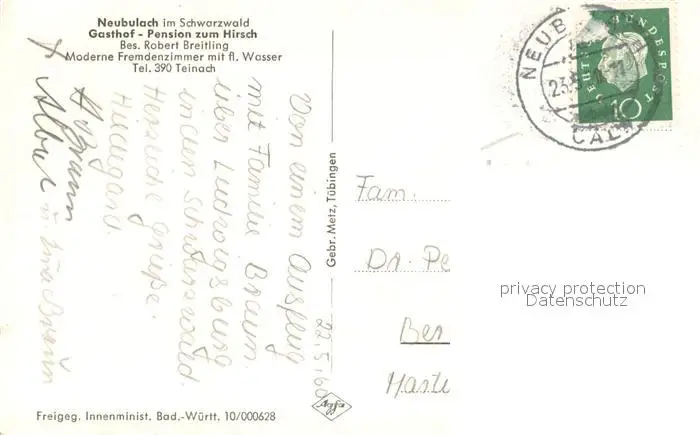 Neubulach im Schwarzwald
Gasthof - Pension zum Hirsch
Bes. Robert Breitling
Moderne Fremdenzimmer mit fl. Wasser
Tel. 390 Teinach
Von einem Ausflug
mit Familie Braun
über Ludwigsburg
in den Schwarzwald
Herzliche Grüße.
Hildegard.
H Braun
Albert u. Irma Braun
22.5.60
Gebr. Metz, Tübingen
Fam.
Dr. Pe
Ber
Marte
DEUTSCHE BUNDESPOST
10
NEUB
CALW
privacy protection
Datenschutz
Freigeg. Innenminist. Bad.-Württ. 10/000628
Agfa